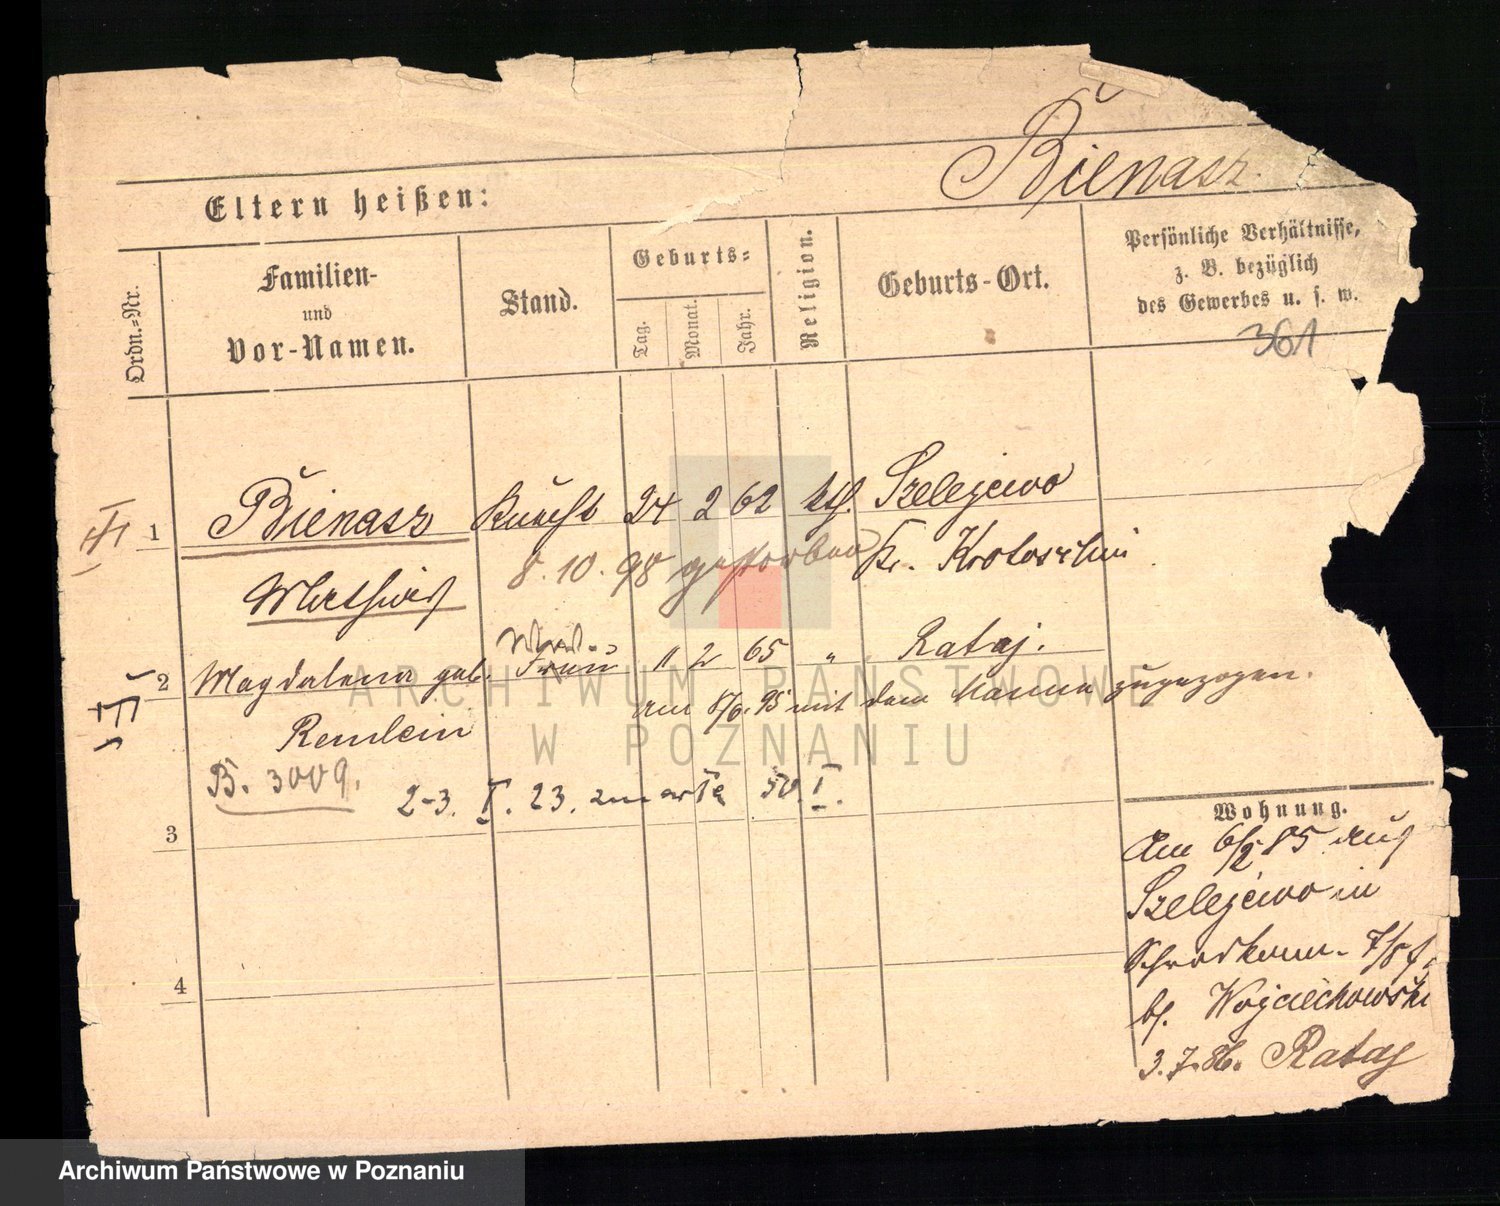 Bienasz.
Eltern heißen:
Ordn.=Nr.
Familien-
und
Vor-Namen.
Stand.
Geburts=
Tag.
Monat.
Jahr.
Religion.
Geburts-Ort.
Persönliche Verhältnisse,
z. B. bezüglich
des Gewerbes u. s. w.
361
1 Bienasz Knecht 24 2 62 kth. Szelejewo
8. 10. 98 gestorben Kr. Krotoschin
Mathias
2 Magdalena geb. Frau 11 2 65 " Rataj.
am 95 mit dem Manne zugezogen.
Remlein
B. 3009.
2-3. I. 23. zmarła
3
4
Wohnung.
Am 6/2 85 aus
Szelejewo in
bei Wojciechowski
3.7.86. Rataj
ARCHIWUM PAŃSTWOWE
W POZNANIU
Archiwum Państwowe w Poznaniu